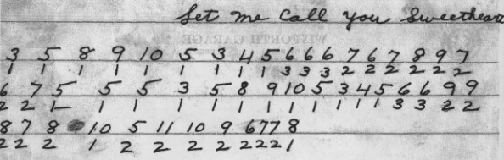 Let me Call you Sweethear
3 5 8 9 10 5 3 4 5 6 6 6 7 6 7 8 9 7
1 1 1 1 1 1 1 1 1 3 3 3 2 2 2 2 2 2
6 7 5 5 5 3 5 8 9 10 5 3 4 5 6 6 9 9
2 2 1 1 1 1 1 1 1 1 1 1 1 1 3 3 2 2
8 7 8 10 5 11 10 9 6 7 7 8
2 2 2 1 2 2 2 2 2 2 2 1